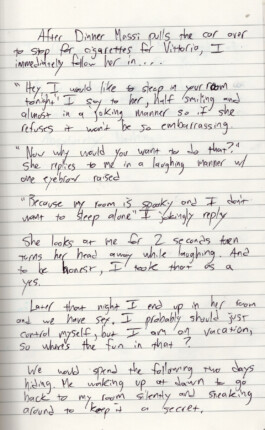 After Dinner Massi pulls the car over
to stop for cigarettes for Vittorio, I
immediately follow her in....
"Hey I would like to sleep in your room
tonight" I say to her, half smiling and
almost in a joking manner so if she
refuses it won't be so embarrassing.
"Now why would you want to do that?"
she replies to me in a laughing manner w/
one eyebrow raised
"Because my room is spooky and I don't
want to sleep alone" I jokingly reply
She looks at me for 2 seconds then
turns her head away while laughing. And
to be honest, I took that as a
yes.
Later that night I end up in her room
and we have sex, I probably should just
control myself, but I am on vacation,
so where's the fun in that?
We would spend the following two days
hiding. Me waking up at dawn to go
back to my room silently and sneaking
around to keep it a secret.